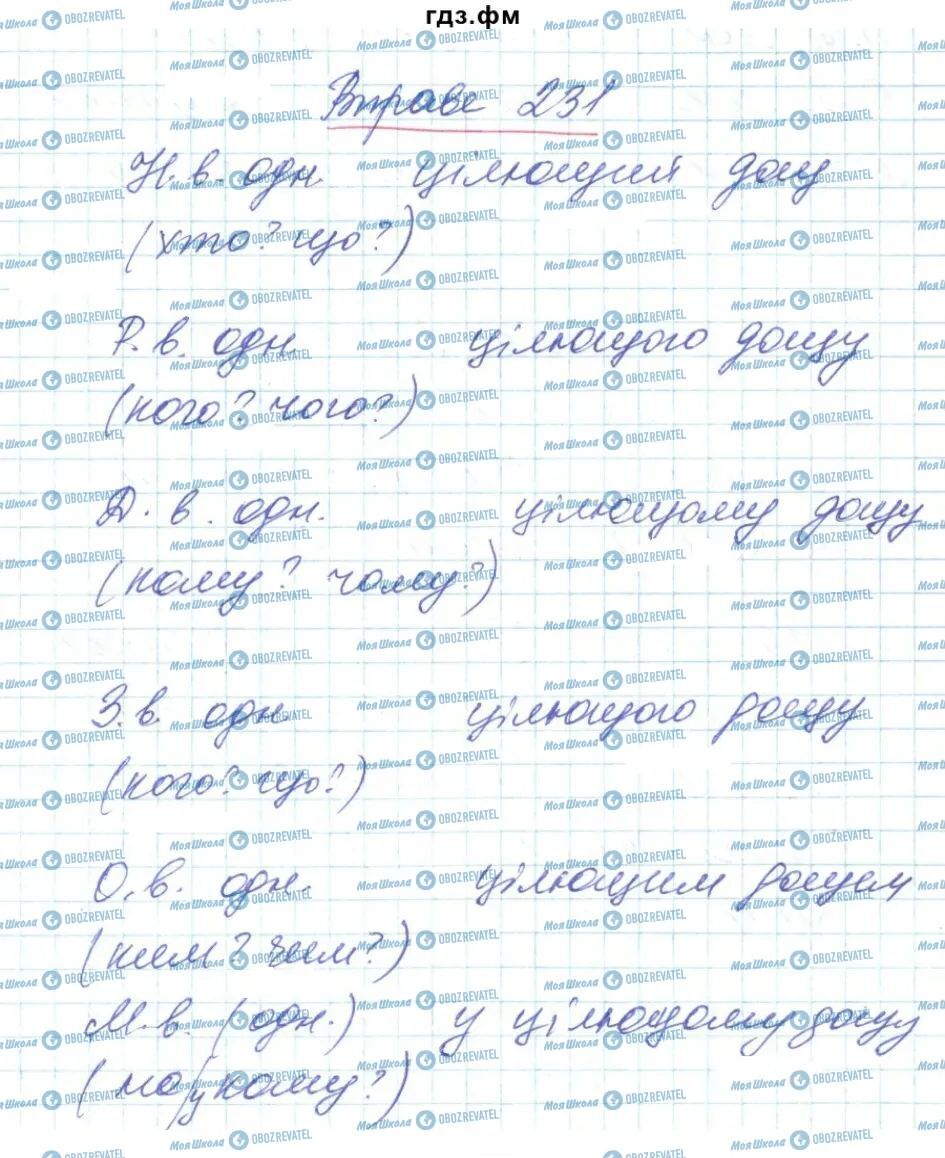 гдз.фм
Вправа 231
Н.в. одн. цілющий дощ
(хто? що?)
Р.в. одн. цілющого дощу
(кого? чого?)
Д.в. одн. цілющому дощу
(кому? чому?)
З.в. одн. цілющого дощу
(кого? що?)
О.в. одн. цілющим дощем
(ким? чим?)
М.в. (одн.) у цілющому дощу
(на/у кому?)
МояШкола OBOZREVATEL